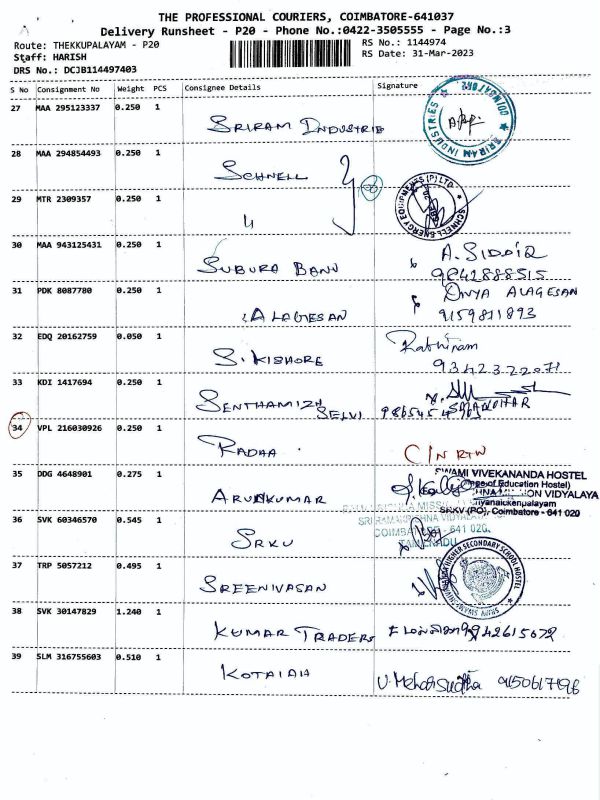 THE PROFESSIONAL COURIERS, COIMBATORE-641037
Delivery Runsheet - P20 - Phone No.:0422-3505555 - Page No.:3
Route: THEKKUPALAYAM - P20 RS No.: 1144974
Staff: HARISH RS Date: 31-Mar-2023
DRS No.: DCJB114497403
S No Consignment No Weight PCS Consignee Details Signature
27 MAA 295123337 0.250 1 SRIRAM INDUSTRIE SRIRAM INDUSTRIES
28 MAA 294854493 0.250 1 SCHNELL SCHNELL ENERGY EQUIPMENTS (P) LTD.
29 MTR 2309357 0.250 1 "
30 MAA 943125431 0.250 1 SUBURA BANU A. SIDDIQ
9842888515
31 PDK 8087780 0.250 1 ALAGESAN DIVYA ALAGESAN
9159811893
32 EDQ 20162759 0.050 1 S. KISHORE Rathinam
9342322071
33 KDI 1417694 0.250 1 SENTHAMIZH SELVI
34 VPL 216030926 0.250 1 RADAA C/N RTW
35 DDG 4648901 0.275 1 ARUNKUMAR
SWAMI VIVEKANANDA HOSTEL
of Education Hostel)
MISSION VIDYALAYA
SRKV (PO), Coimbatore - 641 020
36 SVK 60346570 0.545 1 SRKV
COIMBATORE - 641 020.
TAMILNADU
37 TRP 5057212 0.495 1 SREENIVASAN HIGHER SECONDARY SCHOOL HOSTEL
38 SVK 30147829 1.240 1 KUMAR TRADERS 9942615072
39 SLM 316755603 0.510 1 KOTAIAH V. Meharsudha 9150617196